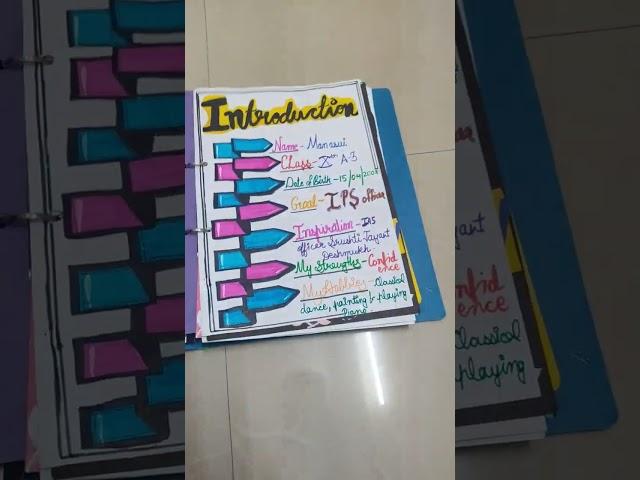 Introduction
Name - Manasvi
Class - Xth A-3
Date of Birth - 15/04/200
Goal - IPS officer
Inspiration - IAS
officer Srushti Jayant
Deshmukh
My Strengths - Confid
ence
My Hobbies - Classical
dance, painting & playing
Piano
nfid
ence
Classical
playing